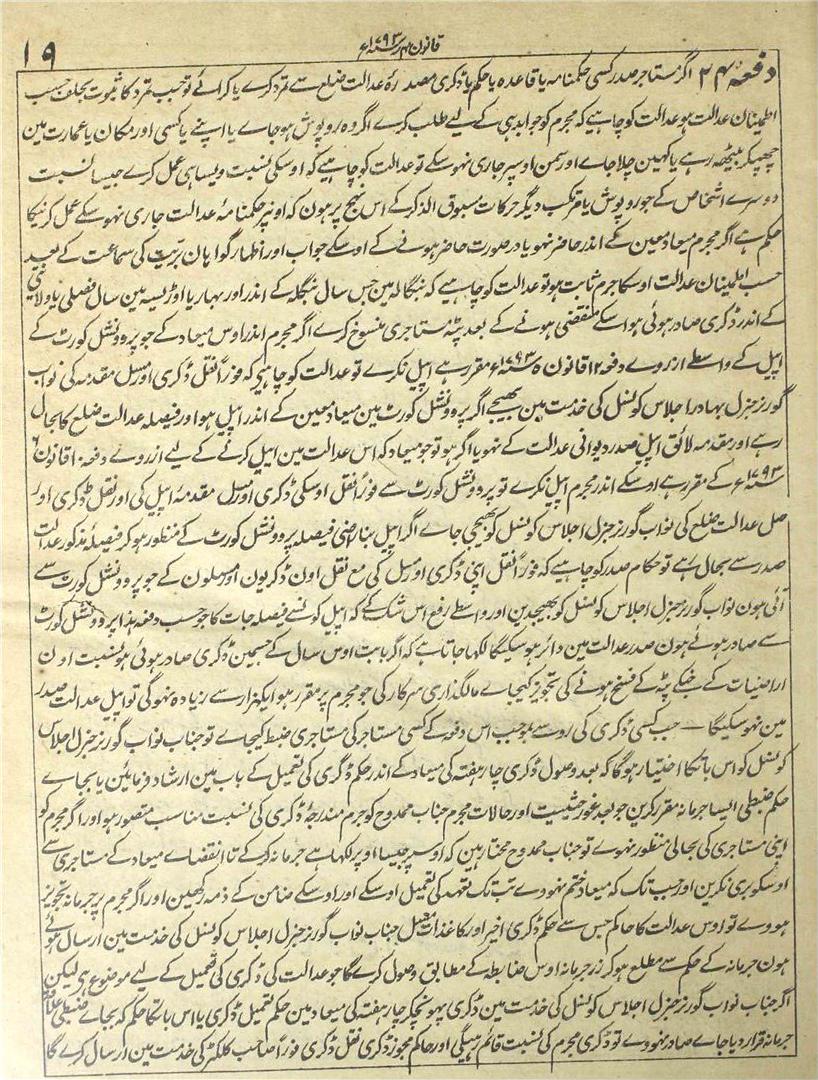 قانون ۴ سنہ ۱۷۹۳ء
۱۹
دفعہ ۲۴ اگر مستاجر صدر کسی حکمنامہ یا قاعدہ یا حکم یا ڈکری مصدرۂ عدالت ضلع سے تمرد کرے یا کرائے تو جب تمرد کا ثبوت بحلف حسب
اطمینان عدالت ہو عدالت کو چاہیے کہ مجرم کو جوابدہی کے لیے طلب کرے اگر وہ روپوش ہو جاے یا اپنے یا کسی اور مکان یا عمارت مین
چھپکر بیٹھہ رہے یا کہین چلا جاے اور سمن اوسپر جاری نہو سکے تو عدالت کو چاہیے کہ اوسکی نسبت ویسا ہی عمل کرے جیسا نسبت
دوسرے اشخاص کے جو روپوش یا مرتکب دیگر حرکات مسبوق الذکر کے اس نہج پر ہون کہ اونپر حکمنامۂ عدالت جاری نہو سکے عمل کرنیکا
حکم ہے اگر مجرم میعاد معین کے اندر حاضر نہو یا در صورت حاضر ہونے کے اوسکے جواب اور اظہار گواہان بریت کی سماعت کے بعد
حسب اطمینان عدالت اوسکا جرم ثابت ہو تو عدالت کو چاہیے کہ بنگالہ مین جس سال بنگلہ کے اندر اور بہار یا اوڑیسہ مین سال فصلی یا ولایتی
کے اندر ڈکری صادر ہوئی ہو اسکے منقضی ہونے کے بعد پٹہ مستاجری منسوخ کرے اگر مجرم اندر اوس میعاد کے جو پروونشل کورٹ کے
اپیل کے واسطے از روے دفعہ ۱۲ قانون ۵ سنہ ۱۷۹۳ء مقرر ہے اپیل نکرے تو عدالت کو چاہیے کہ فوراً نقل ڈکری اور مسل مقدمہ کی نواب
گورنر جنرل بہادر اجلاس کونسل کی خدمت مین بھیجے اگر پروونشل کورٹ مین میعاد معین کے اندر اپیل ہو اور فیصلہ عدالت ضلع کا بحال
رہے اور مقدمہ لائق اپیل صدر دیوانی عدالت کے نہو یا اگر ہو تو جو میعاد کہ اس عدالت مین اپیل کرنے کے لیے از روے دفعہ ۱۰ قانون ۶
سنہ ۱۷۹۳ء کے مقرر ہے اوسکے اندر مجرم اپیل نکرے تو پروونشل کورٹ سے فوراً نقل اوسکی ڈکری اور مسل مقدمۂ اپیل کی اور نقل ڈکری اور
اصل عدالت ضلع کی نواب گورنر جنرل اجلاس کونسل کو بھیجی جاے اگر اپیل بناراضی فیصلہ پروونشل کورٹ کے منظور ہو کر فیصلۂ مذکور عدالت
صدر سے بحال رہے تو حکام صدر کو چاہیے کہ فوراً نقل اپنی ڈکری اور مسل کی مع نقل اون ڈکریون اور مسلون کے جو پروونشل کورٹ سے
آئی ہون نواب گورنر جنرل اجلاس کونسل کو بھیجدین اور واسطے رفع اس شک کے کہ اپیل کونسے فیصلہ جات کا جو حسب دفعہ ہذا پروونشل کورٹ
سے صادر ہوئے ہون صدر عدالت مین دائر ہو سکیگا لکھا جاتا ہے کہ اگر بابت اوس سال کے جسمین ڈکری صادر ہوئی ہو نسبت اون
اراضیات کے جنکے پٹہ کے فسخ ہونے کی تجویز کیجاے مالگذاری سرکار کی جو مجرم پر مقرر ہو ایکہزار سے زیادہ نہوگی تو اپیل عدالت صدر
مین نہو سکیگا — جب کسی ڈکری کی رو سے بموجب اس دفعہ کے کسی مستاجر کی مستاجری ضبط کیجاے تو جناب نواب گورنر جنرل اجلاس
کونسل کو اس بات کا اختیار ہوگا کہ بعد وصول ڈکری چار ہفتہ کی میعاد کے اندر حکم ڈگری کی تعمیل کے باب مین ارشاد فرمائین یا بجاے
حکم ضبطی ایسا جرمانہ مقرر کرین جو بعد غور حیثیت اور حالات مجرم جناب ممدوح کو جرم مندرجۂ ڈکری کی نسبت مناسب متصور ہو اور اگر مجرم کو
اپنی مستاجری کی بحالی منظور نہووے تو جناب ممدوح مختار ہین کہ اوسپر جیسا اوپر لکھا ہے جرمانہ کرکے تا انقضاے میعاد کے مستاجری سے
اوسکو بری نکرین اور جب تک کہ میعاد ختم نہووے تب تک تعہد کی تعمیل اوسکے اور اوسکے ضامن کے ذمہ رکھین اور اگر مجرم پر جرمانہ تجویز
ہووے تو اوس عدالت کا حاکم جس سے حکم ڈکری اخیر اور کاغذات بتعمیل جناب نواب گورنر جنرل اجلاس کونسل کی خدمت مین ارسال ہوئے
ہون جرمانہ کے حکم سے مطلع ہو کر زر جرمانہ اوس ضابطہ کے مطابق وصول کرے گا جو عدالت کی ڈکری کی تعمیل کے لیے موضوع ہی لیکن
اگر جناب نواب گورنر جنرل اجلاس کونسل کی خدمت مین ڈکری پہونچکر چار ہفتہ کی میعاد مین حکم تعمیل ڈکری یا اس بات کا حکم کہ بجاے ضبطی علاقہ
جرمانہ قرار دیا جاے صادر نہووے تو ڈکری مجرم کی نسبت قائم رہیگی اور حاکم مجوز ڈکری نقل ڈکری فوراً صاحب کلکٹر کی خدمت مین ارسال کرے گا